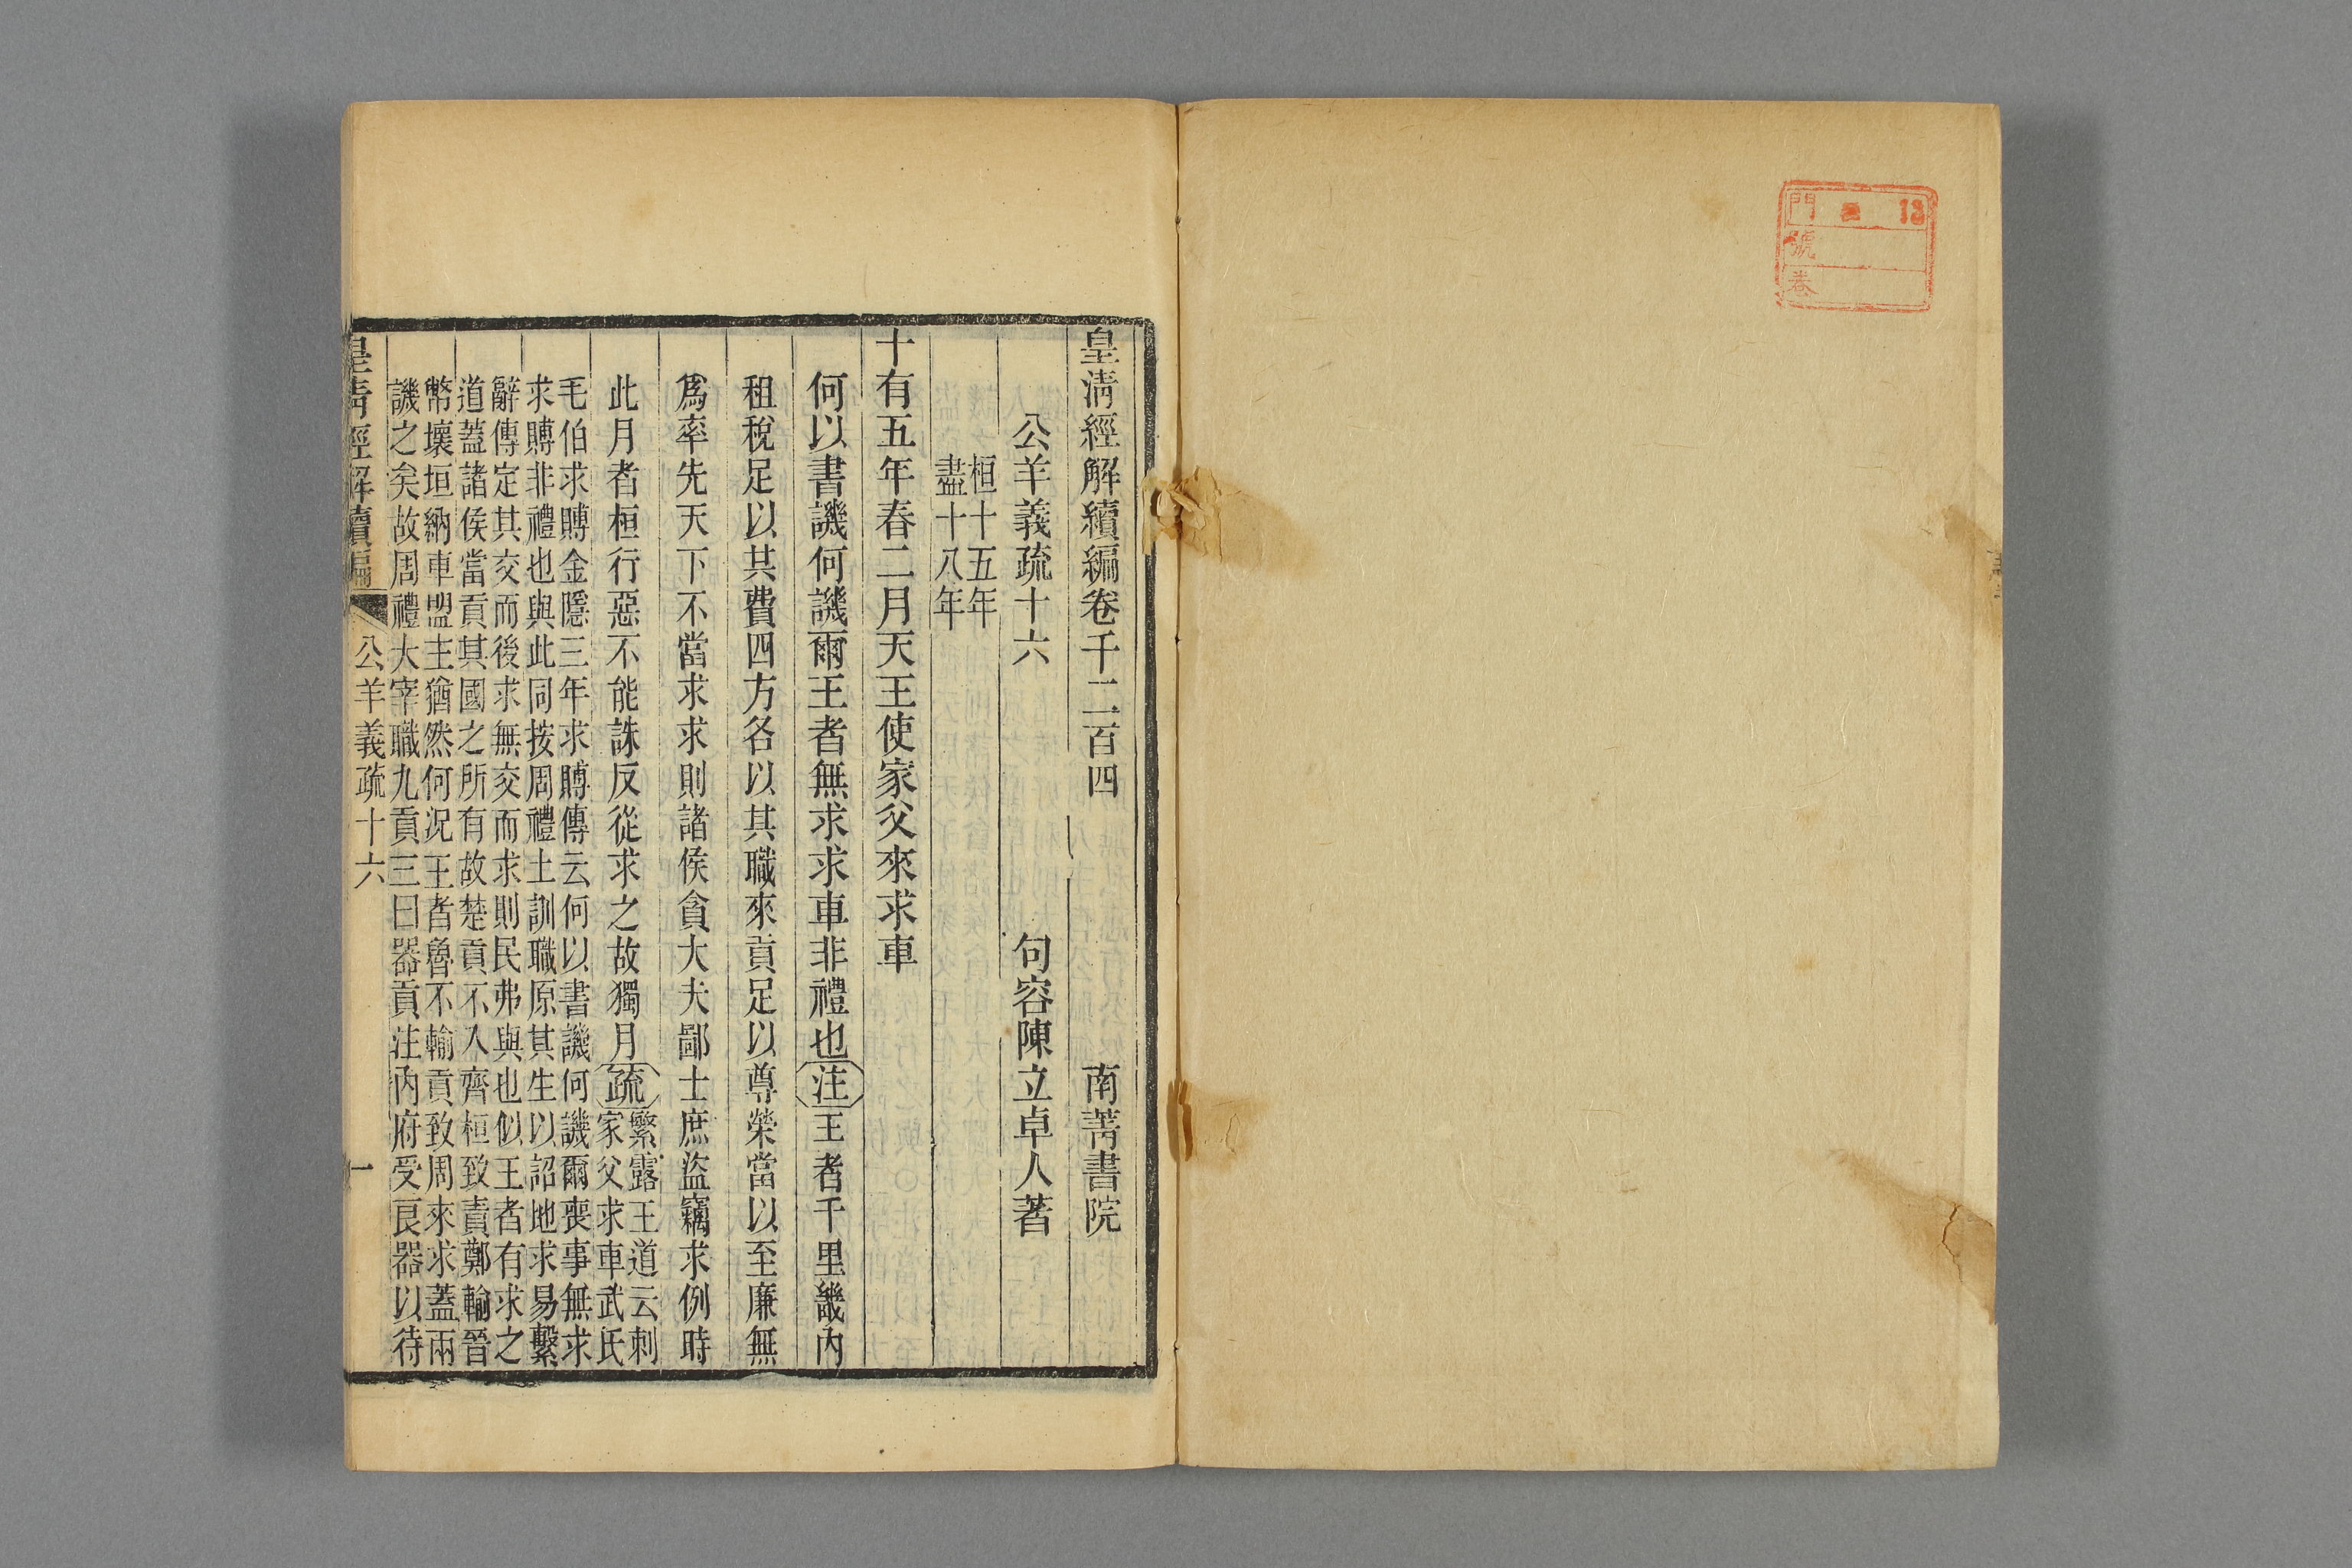 門 13
號
卷
皇淸經解續編卷千二百四 南菁書院
公羊義疏十六 句容陳立卓人著
桓十五年
盡十八年
十有五年春二月天王使家父來求車
何以書譏何譏爾王者無求求車非禮也注王者千里畿內
租稅足以其費四方各以其職來貢足以尊榮當以至廉無
爲率先天下不當求求則諸侯貪大夫鄙士庶盜竊求例時
此月者桓行惡不能誅反從求之故獨月疏
繁露王道云刺
家父求車武氏
毛伯求賻金隱三年求賻傳云何以書譏何譏爾喪事無求
求賻非禮也與此同按周禮土訓職原其生以詔地求易繫
辭傳定其交而後求無交而求則民弗與也似王者有求之
道蓋諸侯當貢其國之所有故楚貢不入齊桓致責鄭輸晉
幣壞垣納車盟主猶然何況王者魯不輸貢致周來求蓋兩
譏之矣故周禮大宰職九貢三曰器貢注內府受良器以待
皇淸經解續編 公羊義疏十六 一